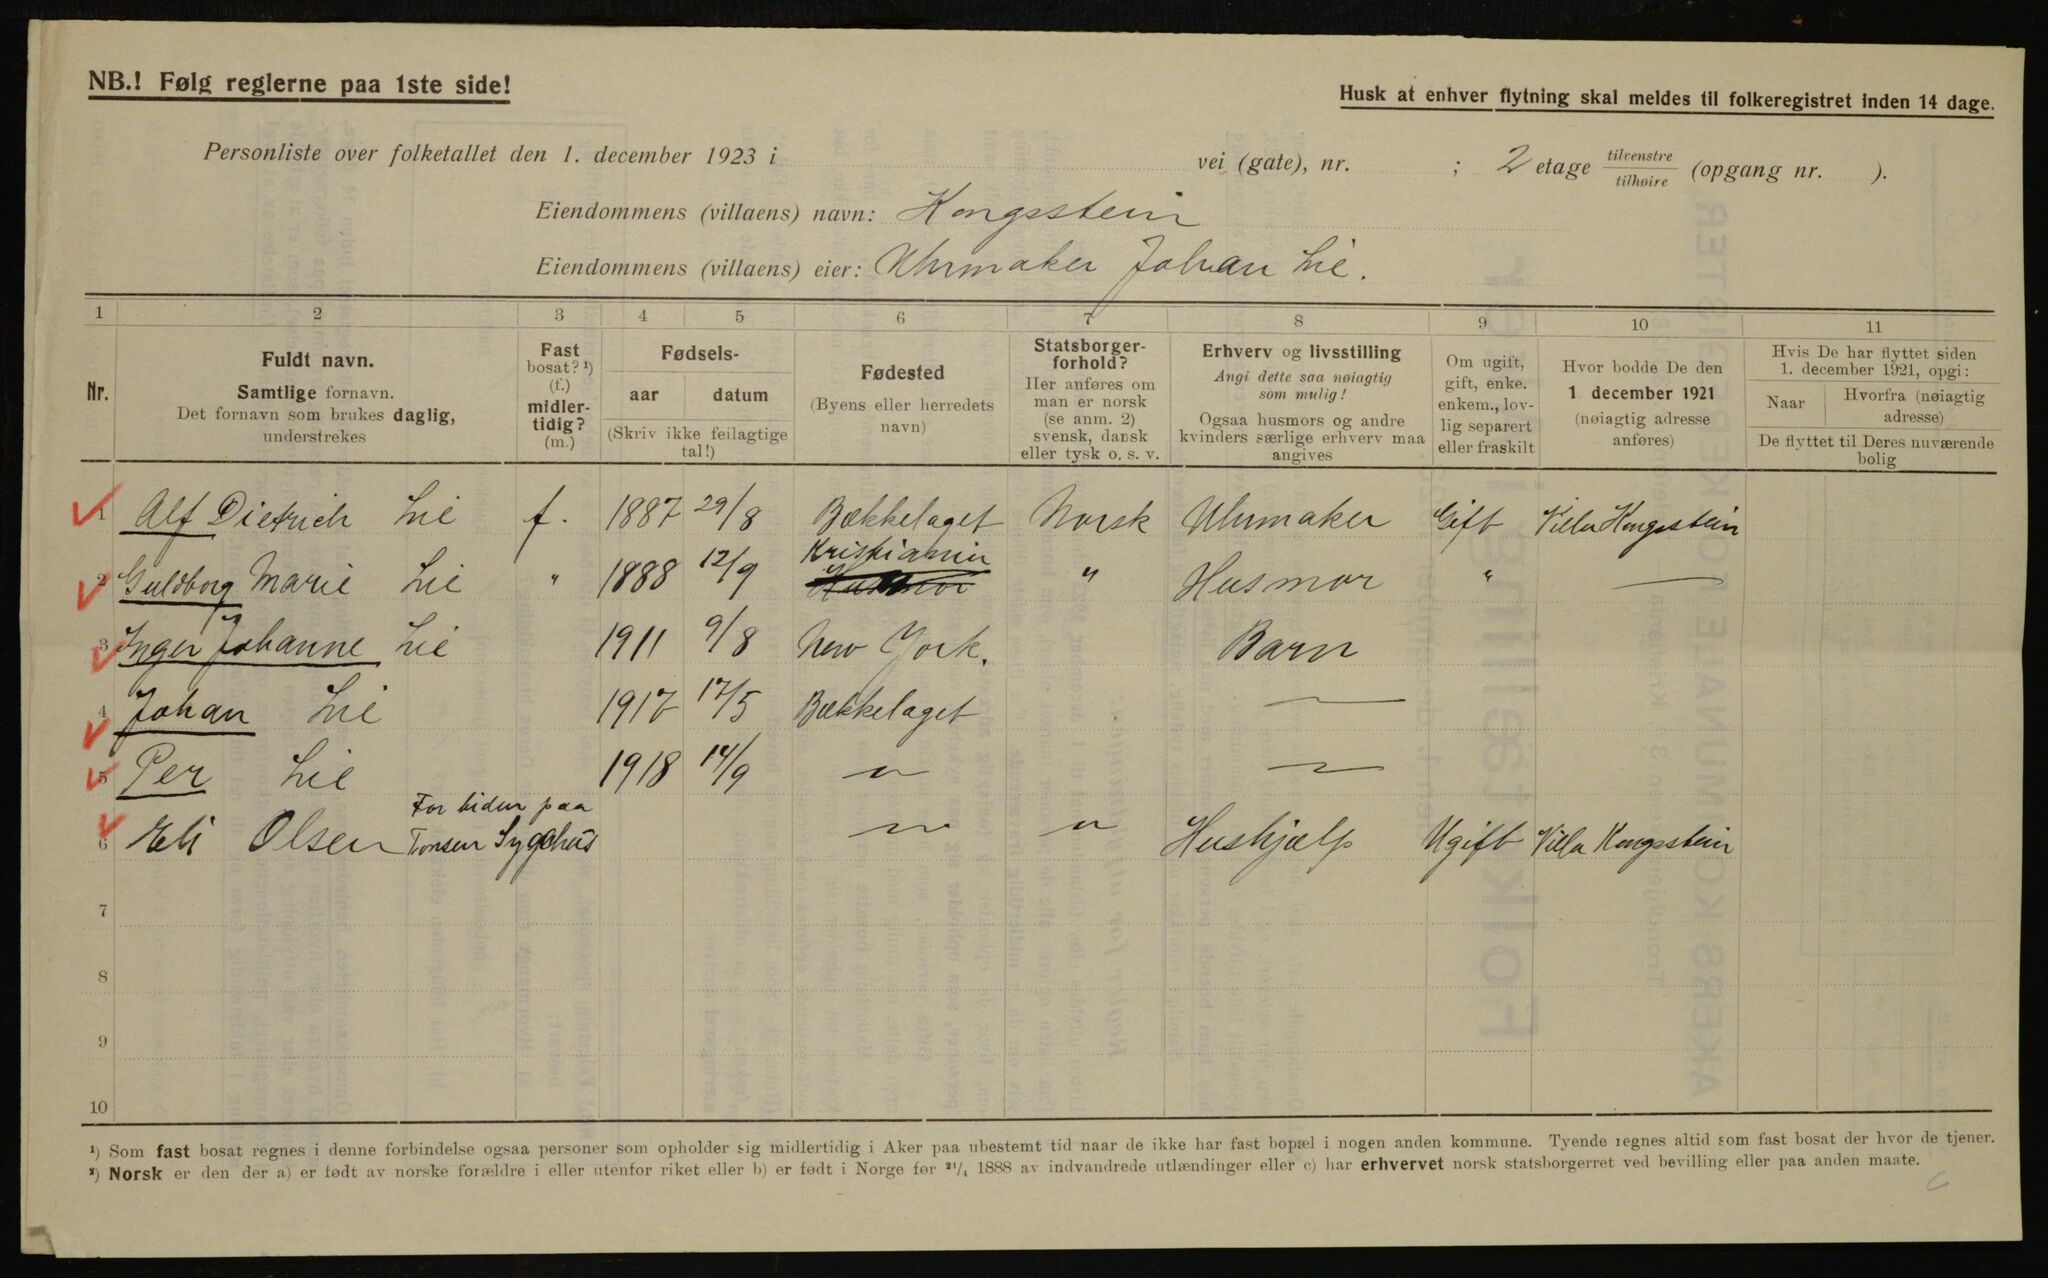 NB.! Følg reglerne paa 1ste side!
Husk at enhver flytning skal meldes til folkeregistret inden 14 dage.
Personliste over folketallet den 1. december 1923 i vei (gate), nr. ; 2 etage tilvenstre / tilhøire (opgang nr. ).
Eiendommens (villaens) navn: Kongsstein
Eiendommens (villaens) eier: Uhrmaker Johan Lie.
1 2 3 4 5 6 7 8 9 10 11
Nr.
Fuldt navn.
Samtlige fornavn.
Det fornavn som brukes daglig,
understrekes
Fast
bosat? ¹)
(f.)
midler-
tidig?
(m.)
Fødsels-
aar datum
(Skriv ikke feilagtige
tal!)
Fødested
(Byens eller herredets
navn)
Statsborger-
forhold?
Her anføres om
man er norsk
(se anm. 2)
svensk, dansk
eller tysk o. s. v.
Erhverv og livsstilling
Angi dette saa nøiagtig
som mulig!
Ogsaa husmors og andre
kvinders særlige erhverv maa
angives
Om ugift,
gift, enke.
enkem., lov-
lig separert
eller fraskilt
Hvor bodde De den
1 december 1921
(nøiagtig adresse
anføres)
Hvis De har flyttet siden
1. december 1921, opgi:
Naar Hvorfra (nøiagtig
adresse)
De flyttet til Deres nuværende
bolig
1 Alf Dietrich Lie f. 1887 29/8 Bækkelaget Norsk Uhrmaker Gift Villa Kongsstein
Kristiania
2 Guldborg Marie Lie " 1888 12/9 Husmor " Husmor " —
3 Inger Johanne Lie 1911 9/8 New York. Barn
4 Johan Lie 1917 17/5 Bækkelaget —
5 Per Lie 1918 14/9 " —
For tiden paa
6 Eli Olsen Tonsen Sygehus " " Hushjælp Ugift Villa Kongsstein
7
8
9
10
¹) Som fast bosat regnes i denne forbindelse ogsaa personer som opholder sig midlertidig i Aker paa ubestemt tid naar de ikke har fast bopæl i nogen anden kommune. Tyende regnes altid som fast bosat der hvor de tjener.
²) Norsk er den der a) er født av norske forældre i eller utenfor riket eller b) er født i Norge før ²¹/₄ 1888 av indvandrede utlændinger eller c) har erhvervet norsk statsborgerret ved bevilling eller paa anden maate.